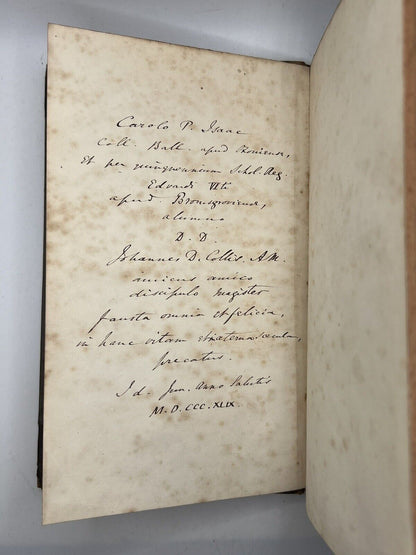 Carolo P. Isaac
Coll. Ball. apud Oxoniensis,
Et per quinquennium Schol. Reg.
Edvardi VIti
apud Bromsgrovienses,
alumno
D. D.
Johannes D. Collis A.M.
amicus amico
discipulo magister
fausta omnia et felicia,
in hanc vitam et aeterna saecula,
precatus.
Id. Jun. Anno Salutis
M.D.CCC.XLIX.